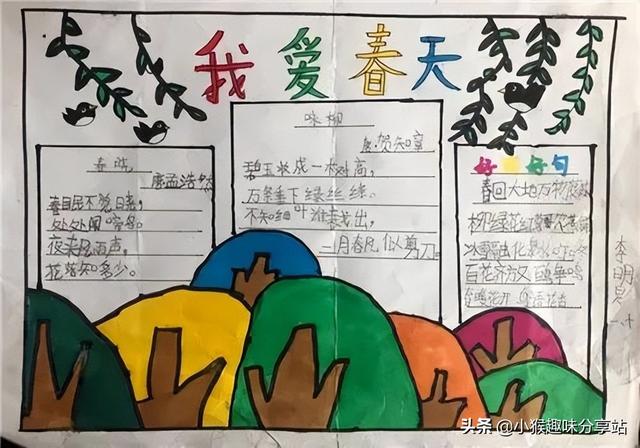 我爱春天
春晓
唐孟浩然
春眠不觉晓,
处处闻啼鸟。
夜来风雨声,
花落知多少。
咏柳
唐·贺知章
碧玉妆成一树高,
万条垂下绿丝绦。
不知细叶谁裁出,
二月春风似剪刀。
好 好句
春回大地万物复苏
柳绿花红莺歌燕舞
冰雪融化泉水叮咚
百花齐放百鸟争鸣
花开 鸟语花香
李明
头条 @小猴趣味分享站